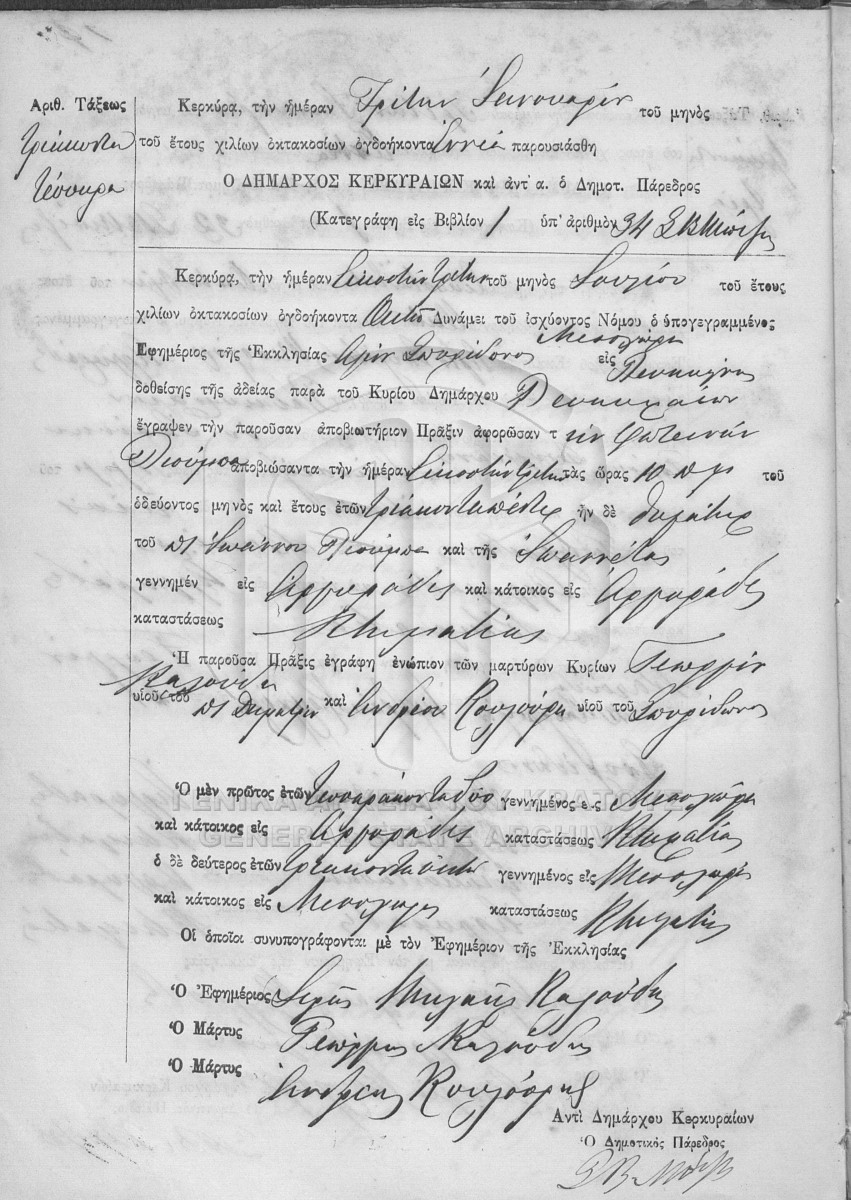 Αριθ. Τάξεως
τριάκοντα
τέσσαρα
Κερκύρᾳ, τὴν ἡμέραν Τρίτην Ἰανουαρίου τοῦ μηνὸς
τοῦ ἔτους χιλίων ὀκτακοσίων ὀγδοήκοντα ἐννέα παρουσιάσθη
Ο ΔΗΜΑΡΧΟΣ ΚΕΡΚΥΡΑΙΩΝ καὶ ἀντ' α. ὁ Δημοτ. Πάρεδρος
(Κατεγράφη εἰς Βιβλίον 1 ὑπ' ἀριθμὸν 34
Κερκύρᾳ, τὴν ἡμέραν εἰκοστὴν τρίτην τοῦ μηνὸς Ἰουλίου τοῦ ἔτους
χιλίων ὀκτακοσίων ὀγδοήκοντα Ὀκτὼ Δυνάμει τοῦ ἰσχύοντος Νόμου ὁ ὑπογεγραμμένος
Ἐφημέριος τῆς Ἐκκλησίας Ἁγίου Σπυρίδωνος εἰς Μεσογγῆ
δοθείσης τῆς ἀδείας παρὰ τοῦ Κυρίου Δημάρχου
ἔγραψεν τὴν παροῦσαν ἀποβιωτήριον Πρᾶξιν ἀφορῶσαν τ ὴν Φωτεινὴν
ἀποβιώσαντα τὴν ἡμέραν εἰκοστὴν τρίτην τὰς ὥρας 10 π μ τοῦ
ὁδεύοντος μηνὸς καὶ ἔτους ἐτῶν τριάκοντα πέντε ἦν δὲ θυγάτηρ
τοῦ π Ἰωάννου καὶ τῆς Ἰωαννέτας
γεννημέν εἰς Ἀργυράδες καὶ κάτοικος εἰς Ἀργυράδες
καταστάσεως Κτηματίας
Ἡ παροῦσα Πρᾶξις ἐγράφη ἐνώπιον τῶν μαρτύρων Κυρίων Γεωργίου
Καλούδη
υἱοῦ τοῦ π Δημητρίου καὶ Ἀνδρέου Κουλούρη υἱοῦ τοῦ Σπυρίδωνος
Ὁ μὲν πρῶτος ἐτῶν τεσσαράκοντα δύο γεννημένος εἰς Μεσογγῆ
καὶ κάτοικος εἰς Ἀργυράδες καταστάσεως Κτηματίας
ὁ δὲ δεύτερος ἐτῶν τριάκοντα ὀκτὼ γεννημένος εἰς Μεσογγῆ
καὶ κάτοικος εἰς Μεσογγῆ καταστάσεως Κτηματίας
Οἱ ὁποῖοι συνυπογράφονται μὲ τὸν Ἐφημέριον τῆς Ἐκκλησίας
Ὁ Ἐφημέριος Ἱερεὺς Μιχαὴλ Καλούδης
Ὁ Μάρτυς Γεώργιος Καλούδης
Ὁ Μάρτυς Ἀνδρέας Κουλούρης
Ἀντὶ Δημάρχου Κερκυραίων
Ὁ Δημοτικὸς Πάρεδρος
ΓΕΝΙΚΑ ΑΡΧΕΙΑ ΤΟΥ ΚΡΑΤΟΥΣ
GENERAL STATE ARCHIVES